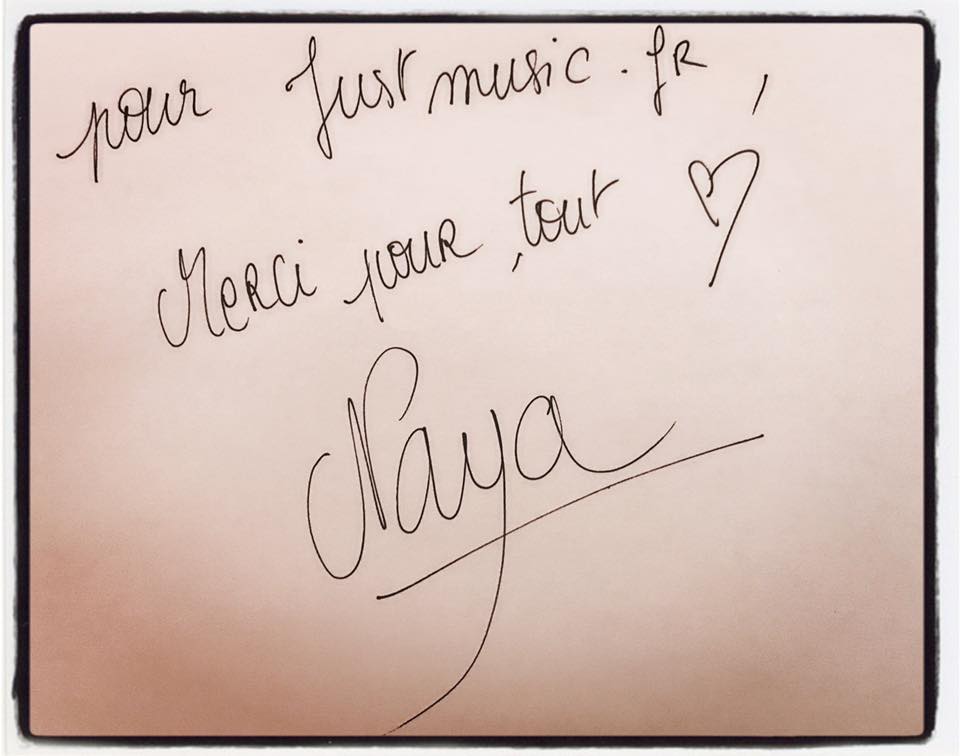 pour Justmusic.fR,
Merci pour tout ♡
Naya